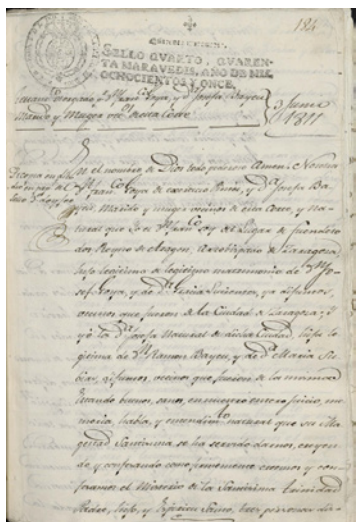 184
SELLO QUARTO, QUAREN-
TA MARAVEDIS, AÑO DE MIL
OCHOCIENTOS Y ONCE.
Marido y Muger
3 Junio
1811
En el nombre de Dios todo poderoso Amen. Nosotros
Goya de exercicio Pintor, y Dª Josefa Ba-
yeu, Marido y muger vecinos de esta Corte, y na-
tural que yo el soy del Lugar de fuendeto-
dos Reyno de Aragon, Arzobispado de Zaragoza,
hijo legitimo de legitimo matrimonio de Dn Jo-
sef Goya, y de Dª Gracia ya difuntos,
vecinos que fueron de la Ciudad de Zaragoza; y
yo la Dª Josefa Natural de dicha Ciudad, hija le-
gitima de Dn Ramon Bayeu, y de Dª Maria Su-
bias, difuntos, vecinos que fueron de la misma
Estando buenos, sanos, en nuestro entero juicio, me-
moria, habla, y entendimto natural que su Ma-
gestad Santisima se ha servido darnos, creyen-
do, y confesando como firmemente creemos y con-
fesamos el Misterio de la Santisima trinidad
Padre, hijo, y Espiritu Santo, tres personas dis-